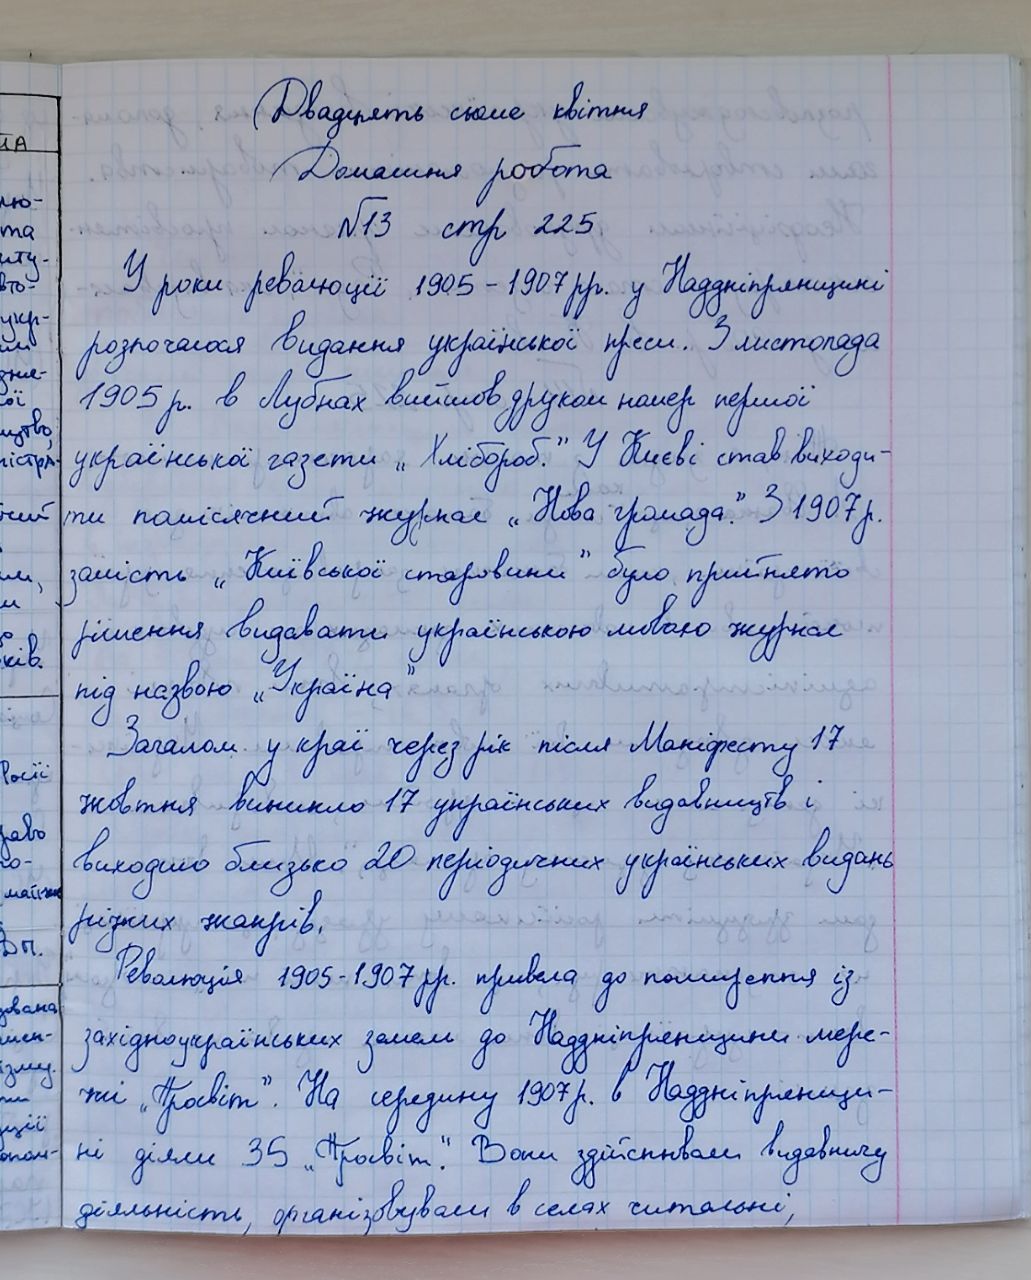 Двадцять сьоме квітня
Домашня робота
№13 стр 225
У роки революції 1905-1907 рр. у Наддніпрянщині
розпочалося видання української преси. З листопада
1905 р. в Лубнах вийшов друком номер першої
української газети „Хлібороб." У Києві став виходи-
ти помісячний журнал „Нова громада". З 1907 р.
замість „Київської старовини" було прийнято
рішення видавати українською мовою журнал
під назвою „Україна"
Загалом у краї через рік після Маніфесту 17
жовтня виникло 17 українських видавництв і
виходило близько 20 періодичних українських видань
різних жанрів.
Революція 1905-1907 рр. привела до поширення із
західноукраїнських земель до Наддніпрянщини мере-
жі „Просвіт". На середину 1907 р. в Наддніпрянщи-
ні діяли 35 „Просвіт". Вони здійснювали видавничу
діяльність, організовували в селах читальні,